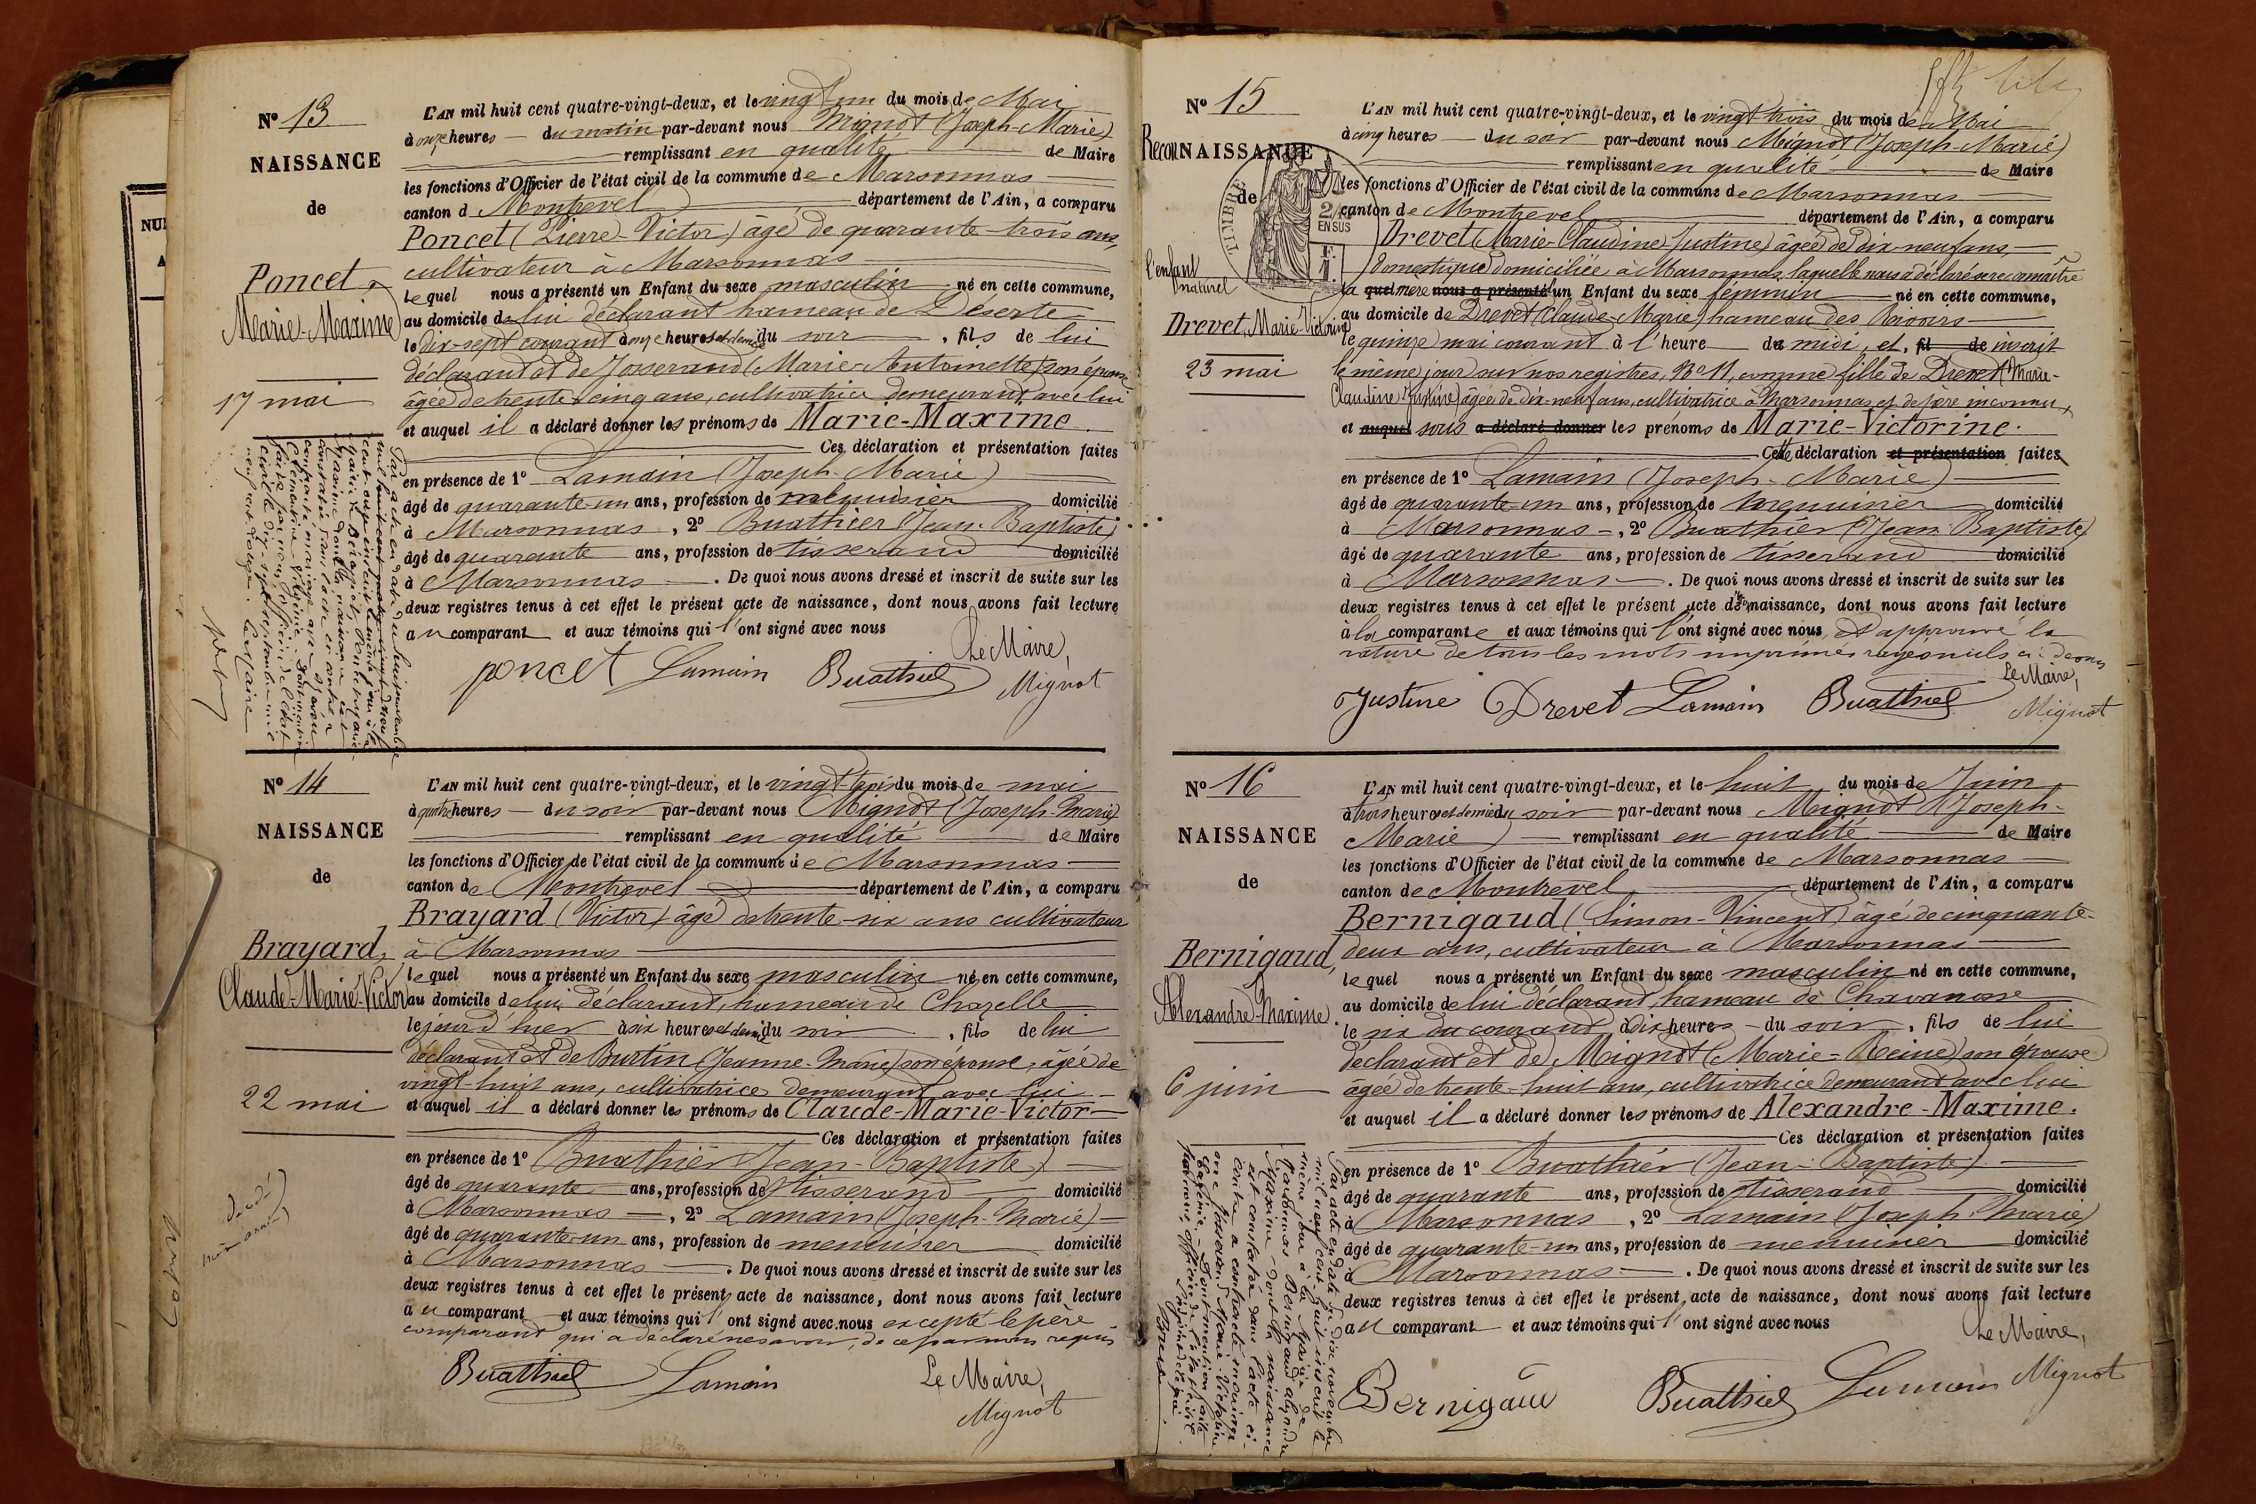 N° 13
NAISSANCE
de
Poncet,
Marie-Maxime
17 mai
L'AN mil huit cent quatre-vingt-deux, et le vingt un du mois de Mai
à onze heures du matin par-devant nous Mignot (Joseph-Marie)
remplissant en qualité de Maire
les fonctions d'Officier de l'état civil de la commune de Marsonnas
canton d Montrevel département de l'Ain, a comparu
Poncet (Pierre-Victor) âgé de quarante-trois ans,
cultivateur à Marsonnas
lequel nous a présenté un Enfant du sexe masculin né en cette commune,
au domicile de lui déclarant hameau de Déserte
le dix-sept courant à onze heures et demie du soir, fils de lui
déclarant et de Josserand (Marie-Antoinette) son épouse
âgée de trente-cinq ans, cultivatrice demeurant avec lui
et auquel il a déclaré donner les prénoms de Marie-Maxime.
Ces déclaration et présentation faites
en présence de 1° Lamain (Joseph-Marie)
âgé de quarante-un ans, profession de menuisier domicilié
à Marsonnas, 2° Buathier (Jean-Baptiste)
âgé de quarante ans, profession de tisserand domicilié
à Marsonnas. De quoi nous avons dressé et inscrit de suite sur les
deux registres tenus à cet effet le présent acte de naissance, dont nous avons fait lecture
au comparant et aux témoins qui l'ont signé avec nous
Le Maire,
poncet Lamain Buathier Mignot
N° 14
NAISSANCE
de
Brayard,
Claude-Marie-Victor
22 mai
L'AN mil huit cent quatre-vingt-deux, et le vingt-trois du mois de mai
à quatre heures du soir par-devant nous Mignot (Joseph-Marie)
remplissant en qualité de Maire
les fonctions d'Officier de l'état civil de la commune de Marsonnas
canton de Montrevel département de l'Ain, a comparu
Brayard (Victor) âgé de trente-six ans cultivateur
à Marsonnas
lequel nous a présenté un Enfant du sexe masculin né en cette commune,
au domicile de lui déclarant, hameau de Chazelle
le jour d'hier à six heures et demie du soir, fils de lui
déclarant et de Burtin (Jeanne-Marie) son épouse, âgée de
vingt-huit ans, cultivatrice demeurant avec lui
et auquel il a déclaré donner les prénoms de Claude-Marie-Victor
Ces déclaration et présentation faites
en présence de 1° Buathier (Jean-Baptiste)
âgé de quarante ans, profession de tisserand domicilié
à Marsonnas, 2° Lamain (Joseph-Marie)
âgé de quarante-un ans, profession de menuisier domicilié
à Marsonnas. De quoi nous avons dressé et inscrit de suite sur les
deux registres tenus à cet effet le présent acte de naissance, dont nous avons fait lecture
au comparant et aux témoins qui l'ont signé avec nous excepté le père
comparant qui a déclaré ne savoir, de ce par nous requis
Buathier Lamain Le Maire,
Mignot
N° 15
ReconNAISSANCE
de
l'enfant
naturel
Drevet, Marie-Victorine
23 mai
TIMBRE
2/10
EN SUS
L'AN mil huit cent quatre-vingt-deux, et le vingt trois du mois de Mai
à cinq heures du soir par-devant nous Mignot (Joseph-Marie)
remplissant en qualité de Maire
les fonctions d'Officier de l'état civil de la commune de Marsonnas
canton de Montrevel département de l'Ain, a comparu
Drevet (Marie-Claudine Justine) âgée de dix-neuf ans,
domestique domiciliée à Marsonnas, laquelle nous a déclaré reconnaître
la quel mère nous a présenté un Enfant du sexe féminin né en cette commune,
au domicile de Drevet (Claude-Marie) hameau des
le quinze mai courant à l'heure de midi, et, fil de inscrit
le même jour sur nos registres, N° 11, comme fille de Drevet (Marie-
Claudine Justine) âgée de dix-neuf ans, cultivatrice à Marsonnas et de père inconnu,
et auquel sous a déclaré donner les prénoms de Marie-Victorine.
Cette déclaration et présentation faites
en présence de 1° Lamain (Joseph-Marie)
âgé de quarante-un ans, profession de menuisier domicilié
à Marsonnas, 2° Buathier (Jean-Baptiste)
âgé de quarante ans, profession de tisserand domicilié
à Marsonnas. De quoi nous avons dressé et inscrit de suite sur les
deux registres tenus à cet effet le présent acte de naissance, dont nous avons fait lecture
à la comparante et aux témoins qui l'ont signé avec nous, et approuvé la
rature de tous les mots imprimés rayés nuls ci-dessus
Le Maire,
Justine Drevet Lamain Buathier Mignot
N° 16
NAISSANCE
de
Bernigaud,
Alexandre-Maxime.
6 juin
L'AN mil huit cent quatre-vingt-deux, et le huit du mois de Juin
à trois heures et demie du soir par-devant nous Mignot (Joseph-
Marie) remplissant en qualité de Maire
les fonctions d'Officier de l'état civil de la commune de Marsonnas
canton de Montrevel département de l'Ain, a comparu
Bernigaud (Simon-Vincent) âgé de cinquante-
deux ans, cultivateur à Marsonnas
lequel nous a présenté un Enfant du sexe masculin né en cette commune,
au domicile de lui déclarant, hameau de Chavanosse
le six du courant à dix heures du soir, fils de lui
déclarant et de Mignot (Marie-Reine) son épouse
âgée de trente-huit ans, cultivatrice demeurant avec lui
et auquel il a déclaré donner les prénoms de Alexandre-Maxime.
Ces déclaration et présentation faites
en présence de 1° Buathier (Jean-Baptiste)
âgé de quarante ans, profession de tisserand domicilié
à Marsonnas, 2° Lamain (Joseph-Marie)
âgé de quarante-un ans, profession de menuisier domicilié
à Marsonnas. De quoi nous avons dressé et inscrit de suite sur les
deux registres tenus à cet effet le présent acte de naissance, dont nous avons fait lecture
au comparant et aux témoins qui l'ont signé avec nous
Le Maire,
Bernigaud Buathier Lamain Mignot
Par acte en date du dix novembre
mil neuf cent huit inscrit le
même jour à la Mairie de
Marsonnas Bernigaud Alexandre
Maxime dont la naissance
est constatée dans l'acte ci-
contre a contracté mariage
avec Josserand Marie-Victorine